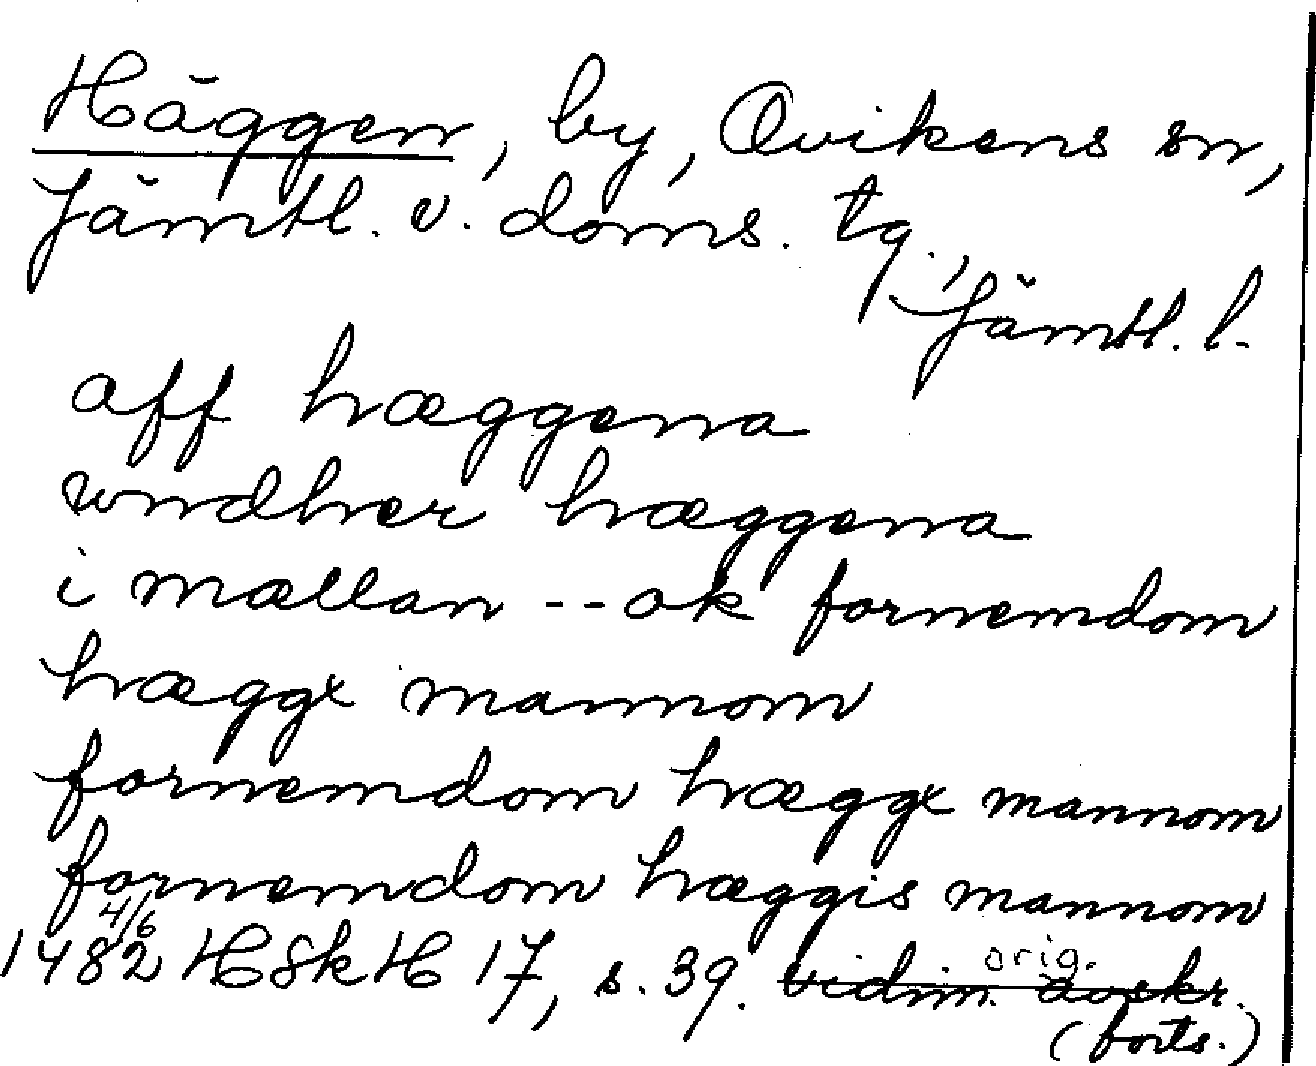 Häggen, by, Ovikens sn,
Jämtl. v. doms. tg.,
Jämtl. l.
aff hæggena
wndher hæggena
i mællan -- ok fornemdom
hæggx mannom
fornemdom hæggx mannom
fornemdom hæggis mannom
4/6
1482 HSkH 17, s. 39. vidim. avskr. orig.
(forts.)